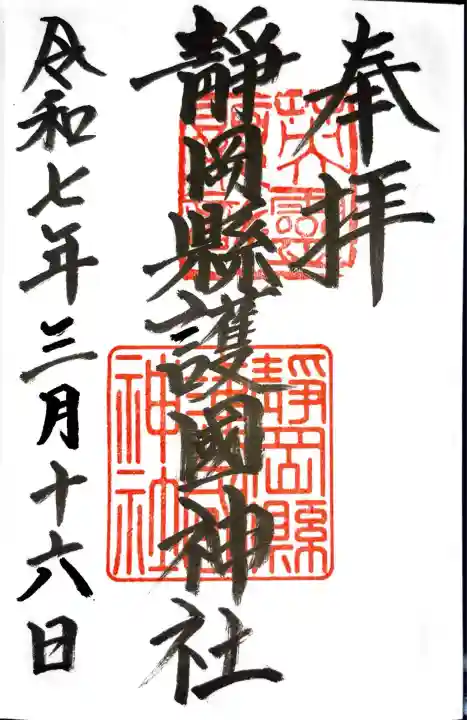 奉拝
靜岡縣護國神社
令和七年三月十六日
靜岡縣
護國
神社